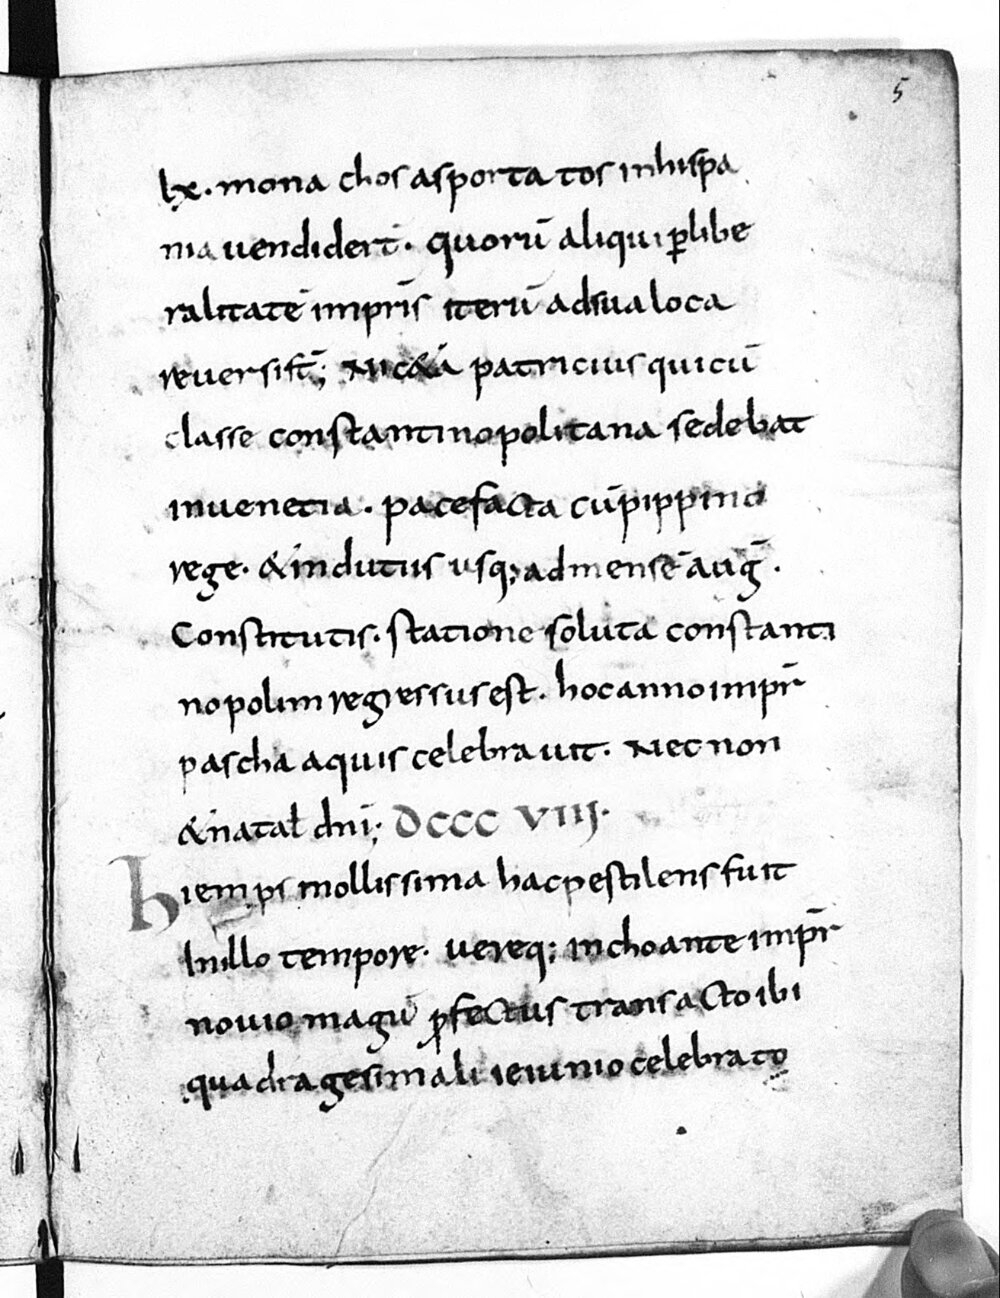 5
lx. monachos asportatos in hispa
nia uendider̄t. quorū aliqui ꝑlibe
ralitatē impr̄is iterū ad sua loca
reuersi sт̄; Nic&a patricius qui cū
classe constantinopolitana sedebat
in uenetia. pace facta cū pippino
rege. & indutiis usq; ad mensē auḡ.
Constitutis. statione soluta constanti
nopolim regressus est. hoc anno impr̄
pascha aquis celebrauit. Nec non
& natał dn̄i; DCCC VIII.
hiemps mollissima hac pestilens fuit
In illo tempore. uereq; inchoante impr̄
nouiomagū ꝓfectus transacto ibi
quadragesimali ieiunio celebrato